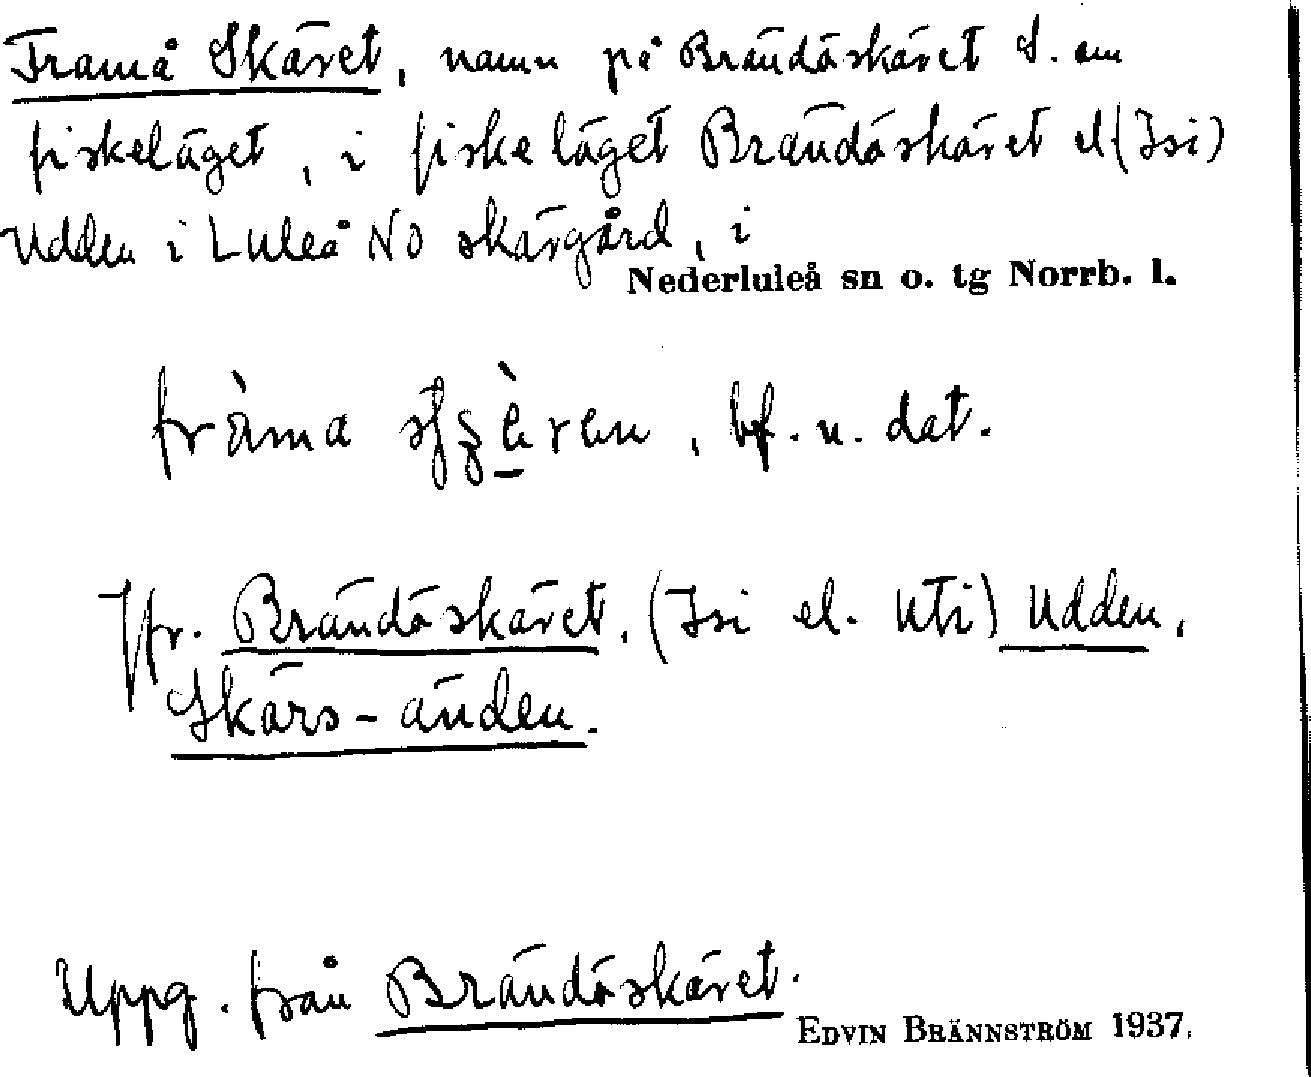 Framå Skäret, namn på Brändöskäret S. om
fiskeläget, i fiskeläget Brändöskäret el (Isi)
Udden i Luleå NO skärgård, i
Nederluleå sn o. tg Norrb. l.
fràma , bf. n. dat.
Jfr. Brändöskäret, (Isi el. Uti) Udden,
Skärs-änden.
Uppg. från Brändöskäret.
EDVIN BRÄNNSTRÖM 1937.